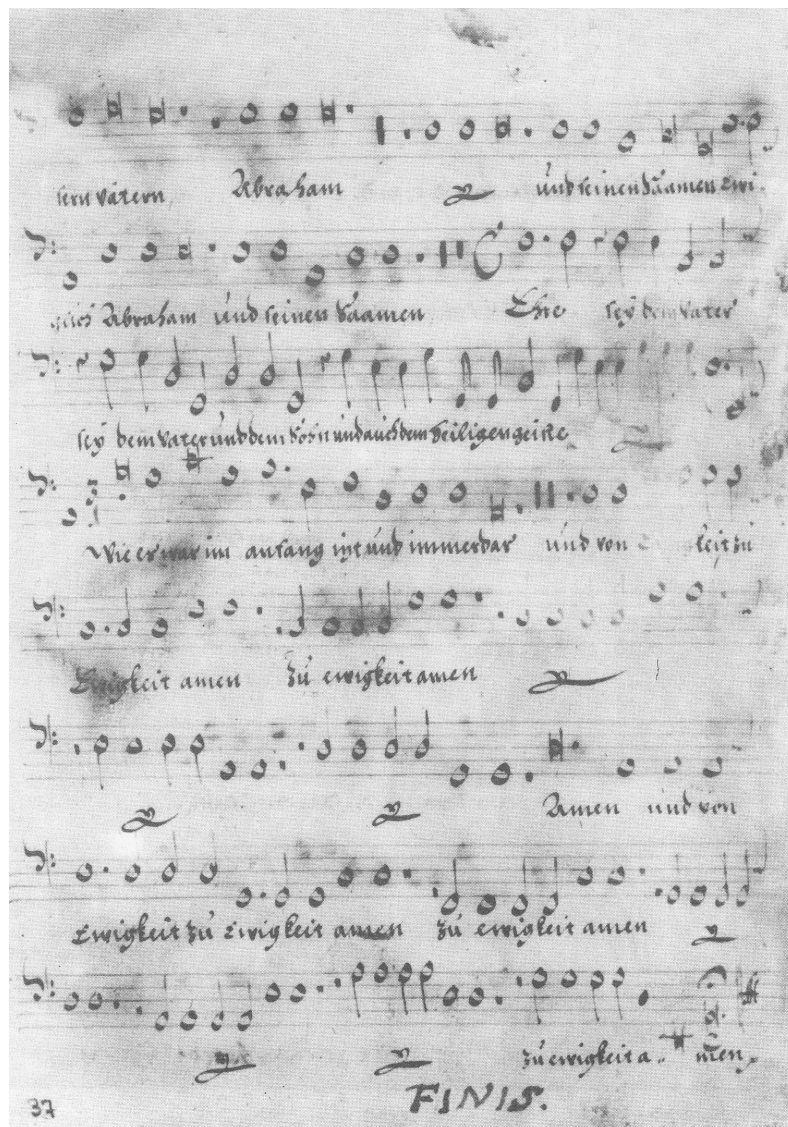 sern vätern Abraham und seinen Saamen Ewi-
glich Abraham und seinen Saamen Ehre sey dem Vater
sey dem Vater und dem Sohn und auch dem heiligen geiste
Wie er war im anfang ist und immerdar und von keit zu
Ewigkeit amen zu ewigkeit amen
Amen und von
Ewigkeit zu Ewigkeit amen zu ewigkeit amen
zu ewigkeit a- men.
FINIS.
37